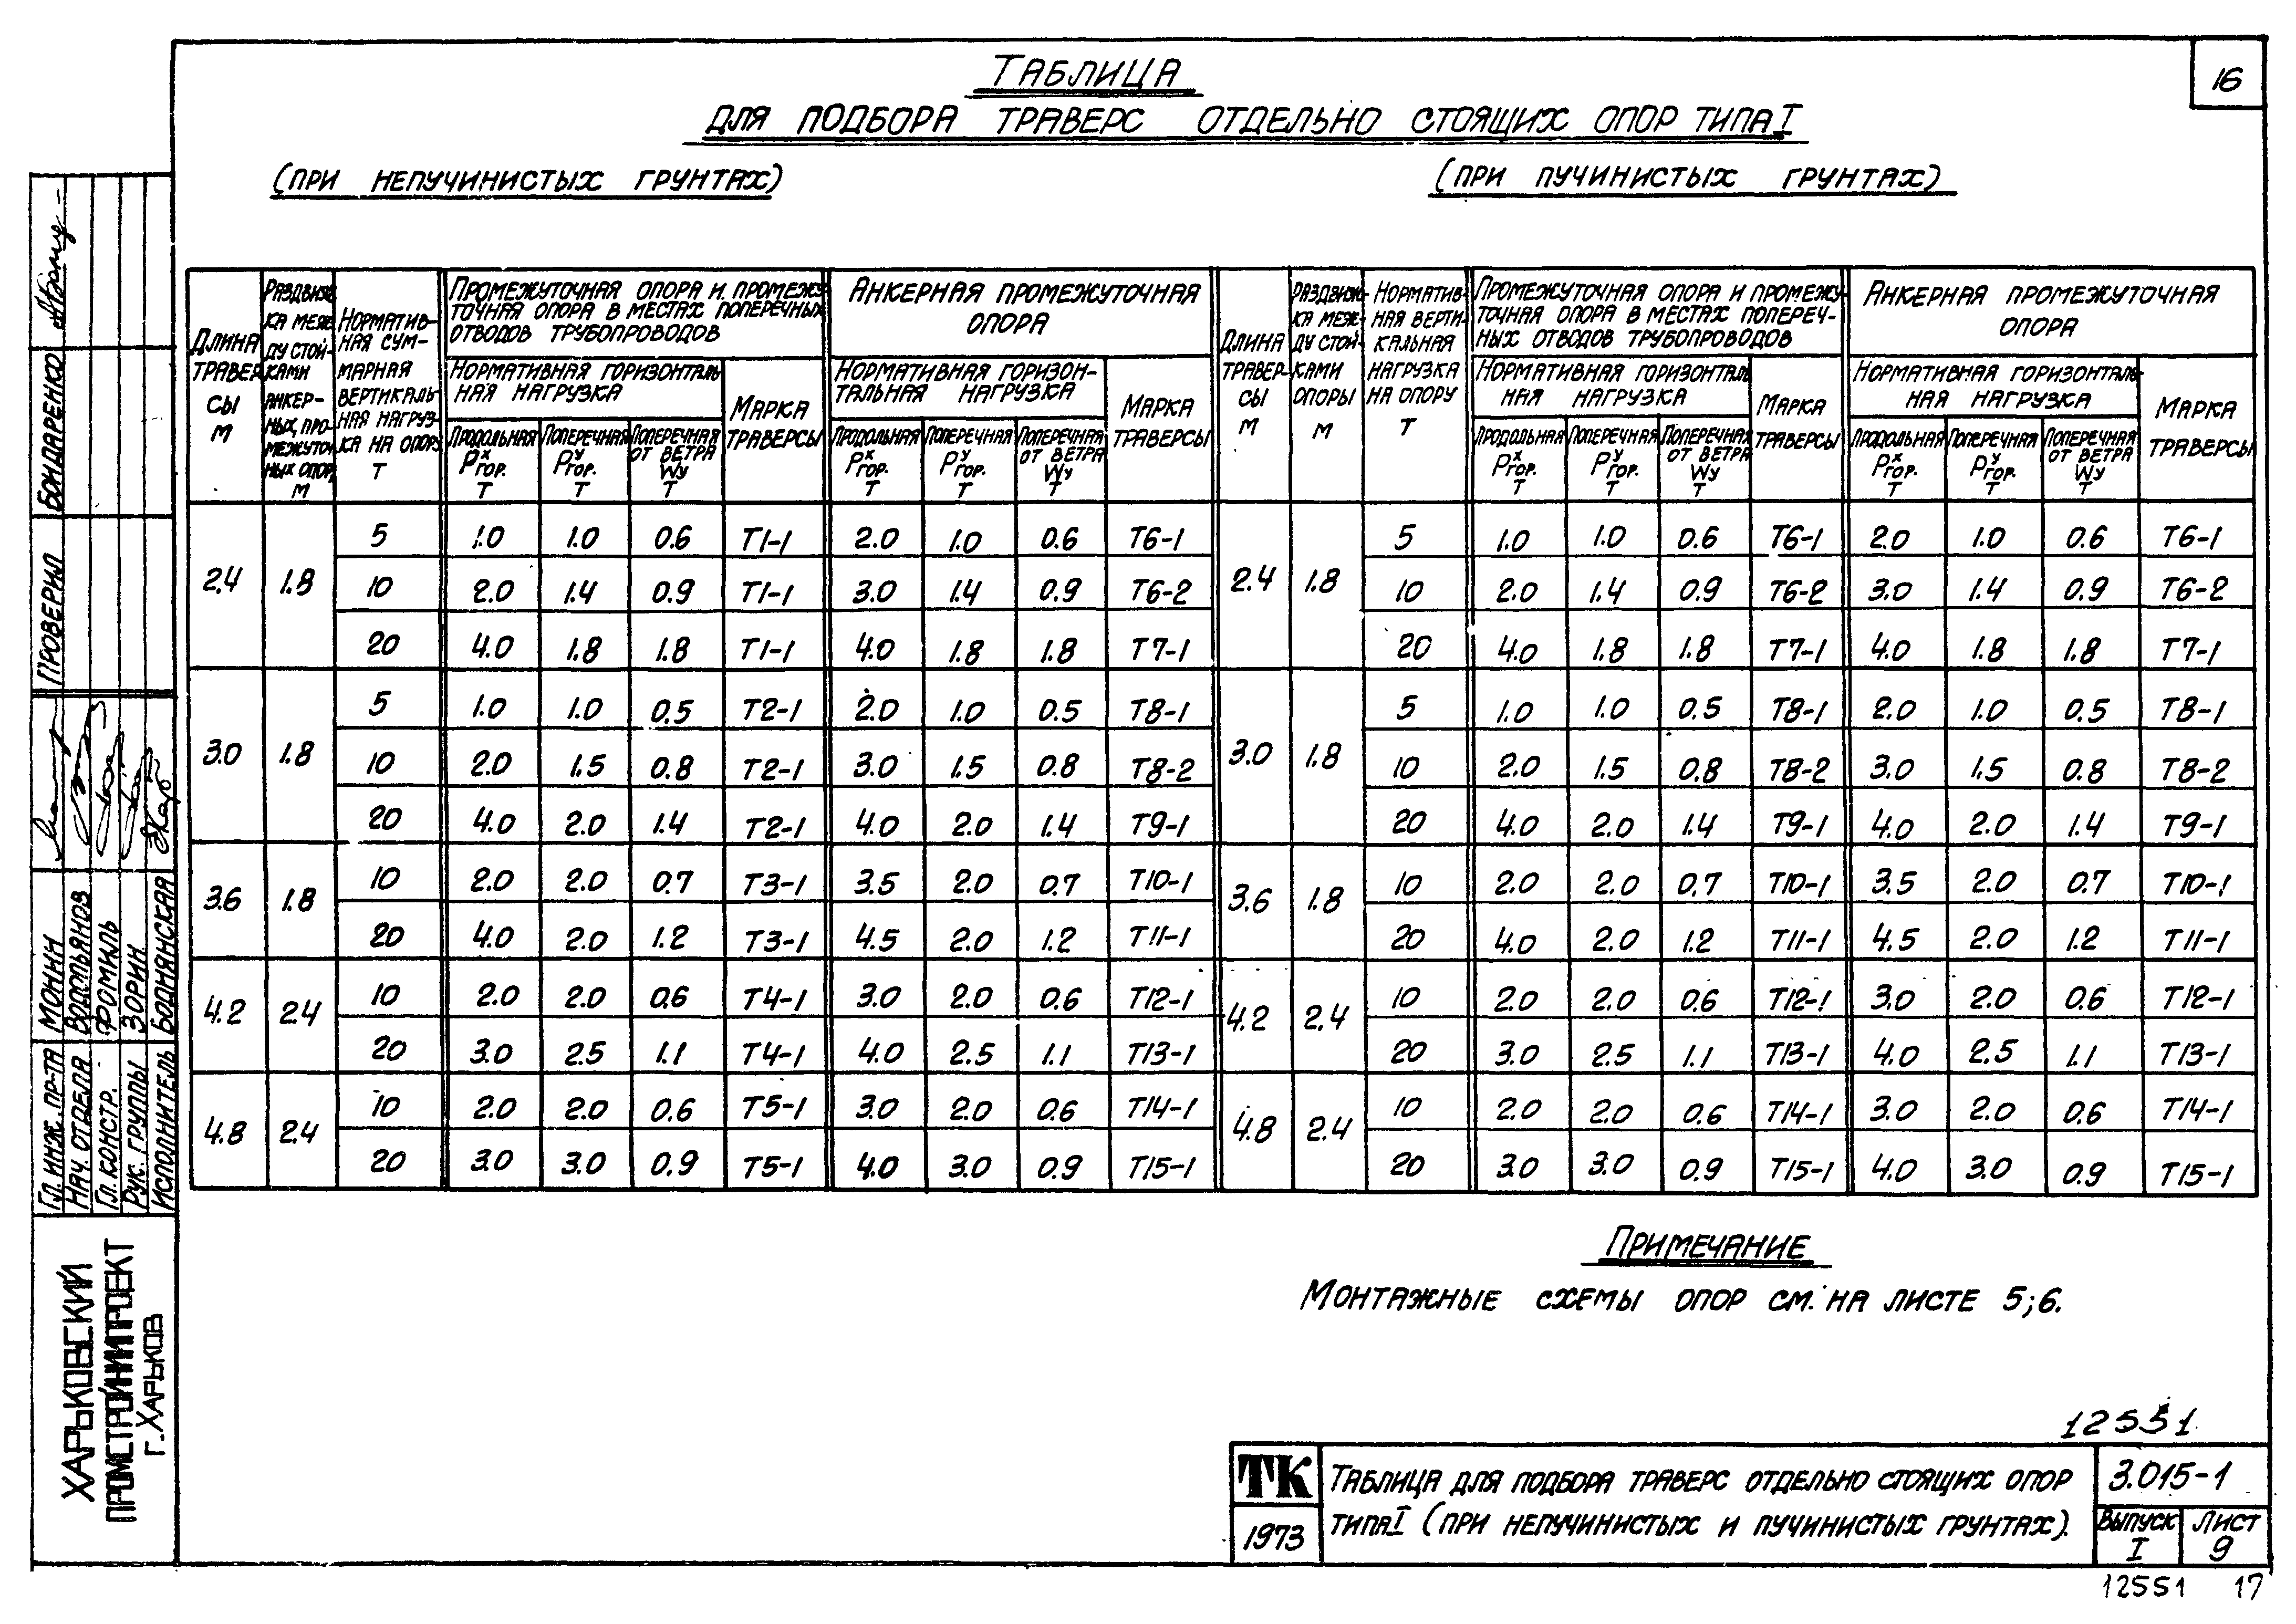 16
ТАБЛИЦА
ДЛЯ ПОДБОРА ТРАВЕРС ОТДЕЛЬНО СТОЯЩИХ ОПОР ТИПА I
(ПРИ НЕПУЧИНИСТЫХ ГРУНТАХ)
(ПРИ ПУЧИНИСТЫХ ГРУНТАХ)
ДЛИНА
ТРАВЕР
СЫ
М
РАЗДВИЖ
КА МЕЖ
ДУ СТОЙ-
КАМИ
АНКЕР-
НЫХ, ПРО-
МЕЖУТОЧ
НЫХ ОПОР,
М
НОРМАТИВ-
НАЯ СУМ-
МАРНАЯ
ВЕРТИКАЛЬ
НАЯ НАГРУЗ-
КА НА ОПОРУ
Т
ПРОМЕЖУТОЧНАЯ ОПОРА И ПРОМЕЖУ
ТОЧНАЯ ОПОРА В МЕСТАХ ПОПЕРЕЧНЫХ
ОТВОДОВ ТРУБОПРОВОДОВ
НОРМАТИВНАЯ ГОРИЗОНТАЛЬ
НАЯ НАГРУЗКА
ПРОДОЛЬНАЯ
Pˣгор.
Т
ПОПЕРЕЧНАЯ
Pʸгор.
Т
ПОПЕРЕЧНАЯ
ОТ ВЕТРА
Wу
Т
МАРКА
ТРАВЕРСЫ
АНКЕРНАЯ ПРОМЕЖУТОЧНАЯ
ОПОРА
НОРМАТИВНАЯ ГОРИЗОН-
ТАЛЬНАЯ НАГРУЗКА
ПРОДОЛЬНАЯ
Pˣгор.
Т
ПОПЕРЕЧНАЯ
Pʸгор.
Т
ПОПЕРЕЧНАЯ
ОТ ВЕТРА
Wу
Т
МАРКА
ТРАВЕРСЫ
ДЛИНА
ТРАВЕР-
СЫ
М
РАЗДВИЖ-
КА МЕЖ-
ДУ СТОЙ-
КАМИ
ОПОРЫ
М
НОРМАТИВ-
НАЯ ВЕРТИ-
КАЛЬНАЯ
НАГРУЗКА
НА ОПОРУ
Т
ПРОМЕЖУТОЧНАЯ ОПОРА И ПРОМЕЖУ-
ТОЧНАЯ ОПОРА В МЕСТАХ ПОПЕРЕЧ-
НЫХ ОТВОДОВ ТРУБОПРОВОДОВ
НОРМАТИВНАЯ ГОРИЗОНТАЛЬ
НАЯ НАГРУЗКА
ПРОДОЛЬНАЯ
Pˣгор.
Т
ПОПЕРЕЧНАЯ
Pʸгор.
Т
ПОПЕРЕЧНАЯ
ОТ ВЕТРА
Wу
Т
МАРКА
ТРАВЕРСЫ
АНКЕРНАЯ ПРОМЕЖУТОЧНАЯ
ОПОРА
НОРМАТИВНАЯ ГОРИЗОНТАЛЬ
НАЯ НАГРУЗКА
ПРОДОЛЬНАЯ
Pˣгор.
Т
ПОПЕРЕЧНАЯ
Pʸгор.
Т
ПОПЕРЕЧНАЯ
ОТ ВЕТРА
Wу
Т
МАРКА
ТРАВЕРСЫ
2.4 1.8 5 1.0 1.0 0.6 Т1-1 2.0 1.0 0.6 Т6-1 2.4 1.8 5 1.0 1.0 0.6 Т6-1 2.0 1.0 0.6 Т6-1
10 2.0 1.4 0.9 Т1-1 3.0 1.4 0.9 Т6-2 10 2.0 1.4 0.9 Т6-2 3.0 1.4 0.9 Т6-2
20 4.0 1.8 1.8 Т1-1 4.0 1.8 1.8 Т7-1 20 4.0 1.8 1.8 Т7-1 4.0 1.8 1.8 Т7-1
3.0 1.8 5 1.0 1.0 0.5 Т2-1 2.0 1.0 0.5 Т8-1 3.0 1.8 5 1.0 1.0 0.5 Т8-1 2.0 1.0 0.5 Т8-1
10 2.0 1.5 0.8 Т2-1 3.0 1.5 0.8 Т8-2 10 2.0 1.5 0.8 Т8-2 3.0 1.5 0.8 Т8-2
20 4.0 2.0 1.4 Т2-1 4.0 2.0 1.4 Т9-1 20 4.0 2.0 1.4 Т9-1 4.0 2.0 1.4 Т9-1
3.6 1.8 10 2.0 2.0 0.7 Т3-1 3.5 2.0 0.7 Т10-1 3.6 1.8 10 2.0 2.0 0.7 Т10-1 3.5 2.0 0.7 Т10-1
20 4.0 2.0 1.2 Т3-1 4.5 2.0 1.2 Т11-1 20 4.0 2.0 1.2 Т11-1 4.5 2.0 1.2 Т11-1
4.2 2.4 10 2.0 2.0 0.6 Т4-1 3.0 2.0 0.6 Т12-1 4.2 2.4 10 2.0 2.0 0.6 Т12-1 3.0 2.0 0.6 Т12-1
20 3.0 2.5 1.1 Т4-1 4.0 2.5 1.1 Т13-1 20 3.0 2.5 1.1 Т13-1 4.0 2.5 1.1 Т13-1
4.8 2.4 10 2.0 2.0 0.6 Т5-1 3.0 2.0 0.6 Т14-1 4.8 2.4 10 2.0 2.0 0.6 Т14-1 3.0 2.0 0.6 Т14-1
20 3.0 3.0 0.9 Т5-1 4.0 3.0 0.9 Т15-1 20 3.0 3.0 0.9 Т15-1 4.0 3.0 0.9 Т15-1
ПРИМЕЧАНИЕ
МОНТАЖНЫЕ СХЕМЫ ОПОР СМ. НА ЛИСТЕ 5;6.
12551
ТК
1973
ТАБЛИЦА ДЛЯ ПОДБОРА ТРАВЕРС ОТДЕЛЬНО СТОЯЩИХ ОПОР
ТИПА I (ПРИ НЕПУЧИНИСТЫХ И ПУЧИНИСТЫХ ГРУНТАХ).
3.015-1
ВЫПУСК
I
ЛИСТ
9
12551 17
ПРОВЕРИЛ БОНДАРЕНКО
ГЛ. ИНЖ. ПР-ТА МОНИН
НАЧ. ОТДЕЛА ВОДОПЬЯНОВ
ГЛ. КОНСТР. ФОМИЛЬ
РУК. ГРУППЫ ЗОРИН
ИСПОЛНИТЕЛЬ ВОДНЯНСКАЯ
ХАРЬКОВСКИЙ
ПРОМСТРОЙНИИПРОЕКТ
Г. ХАРЬКОВ